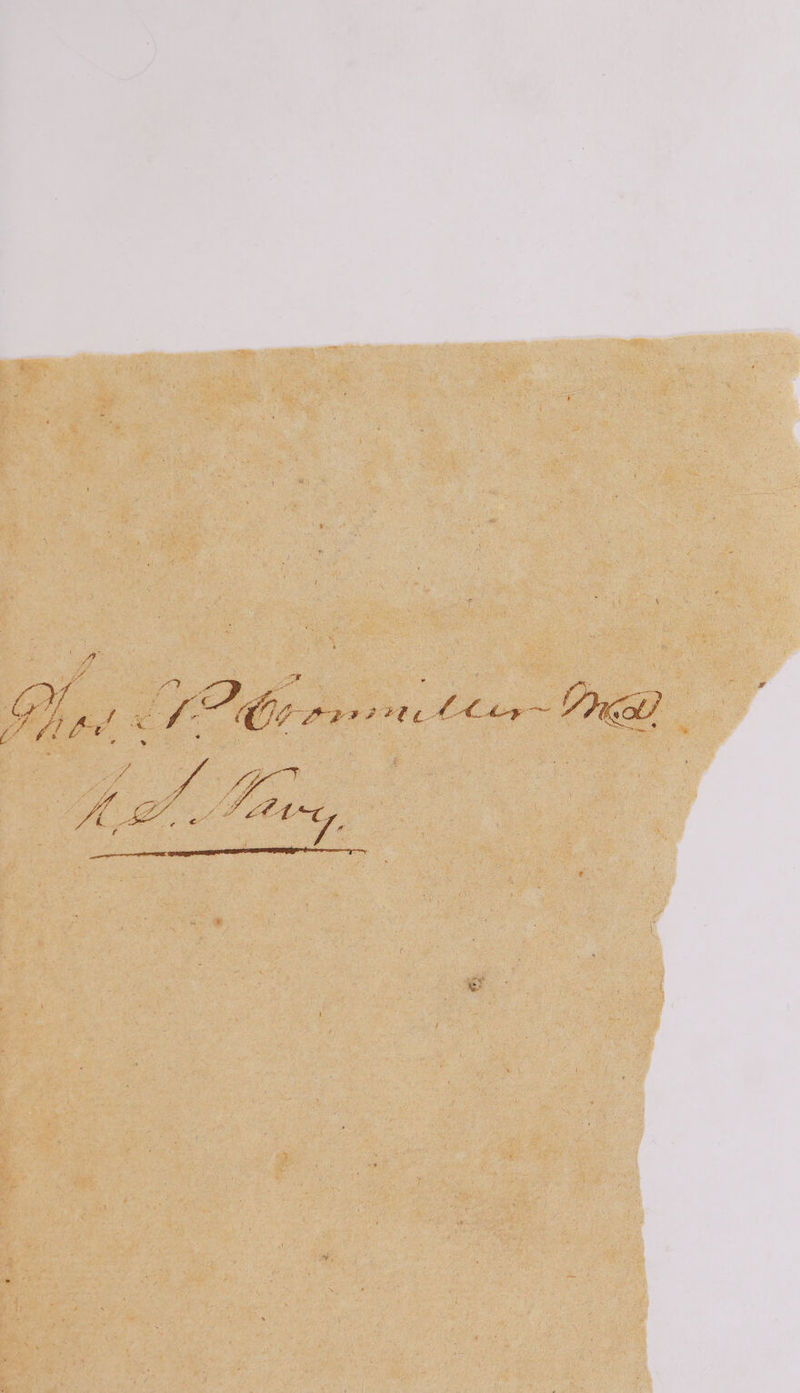 Thos. L. P. Cronmiller M.D.
U.S. Navy.